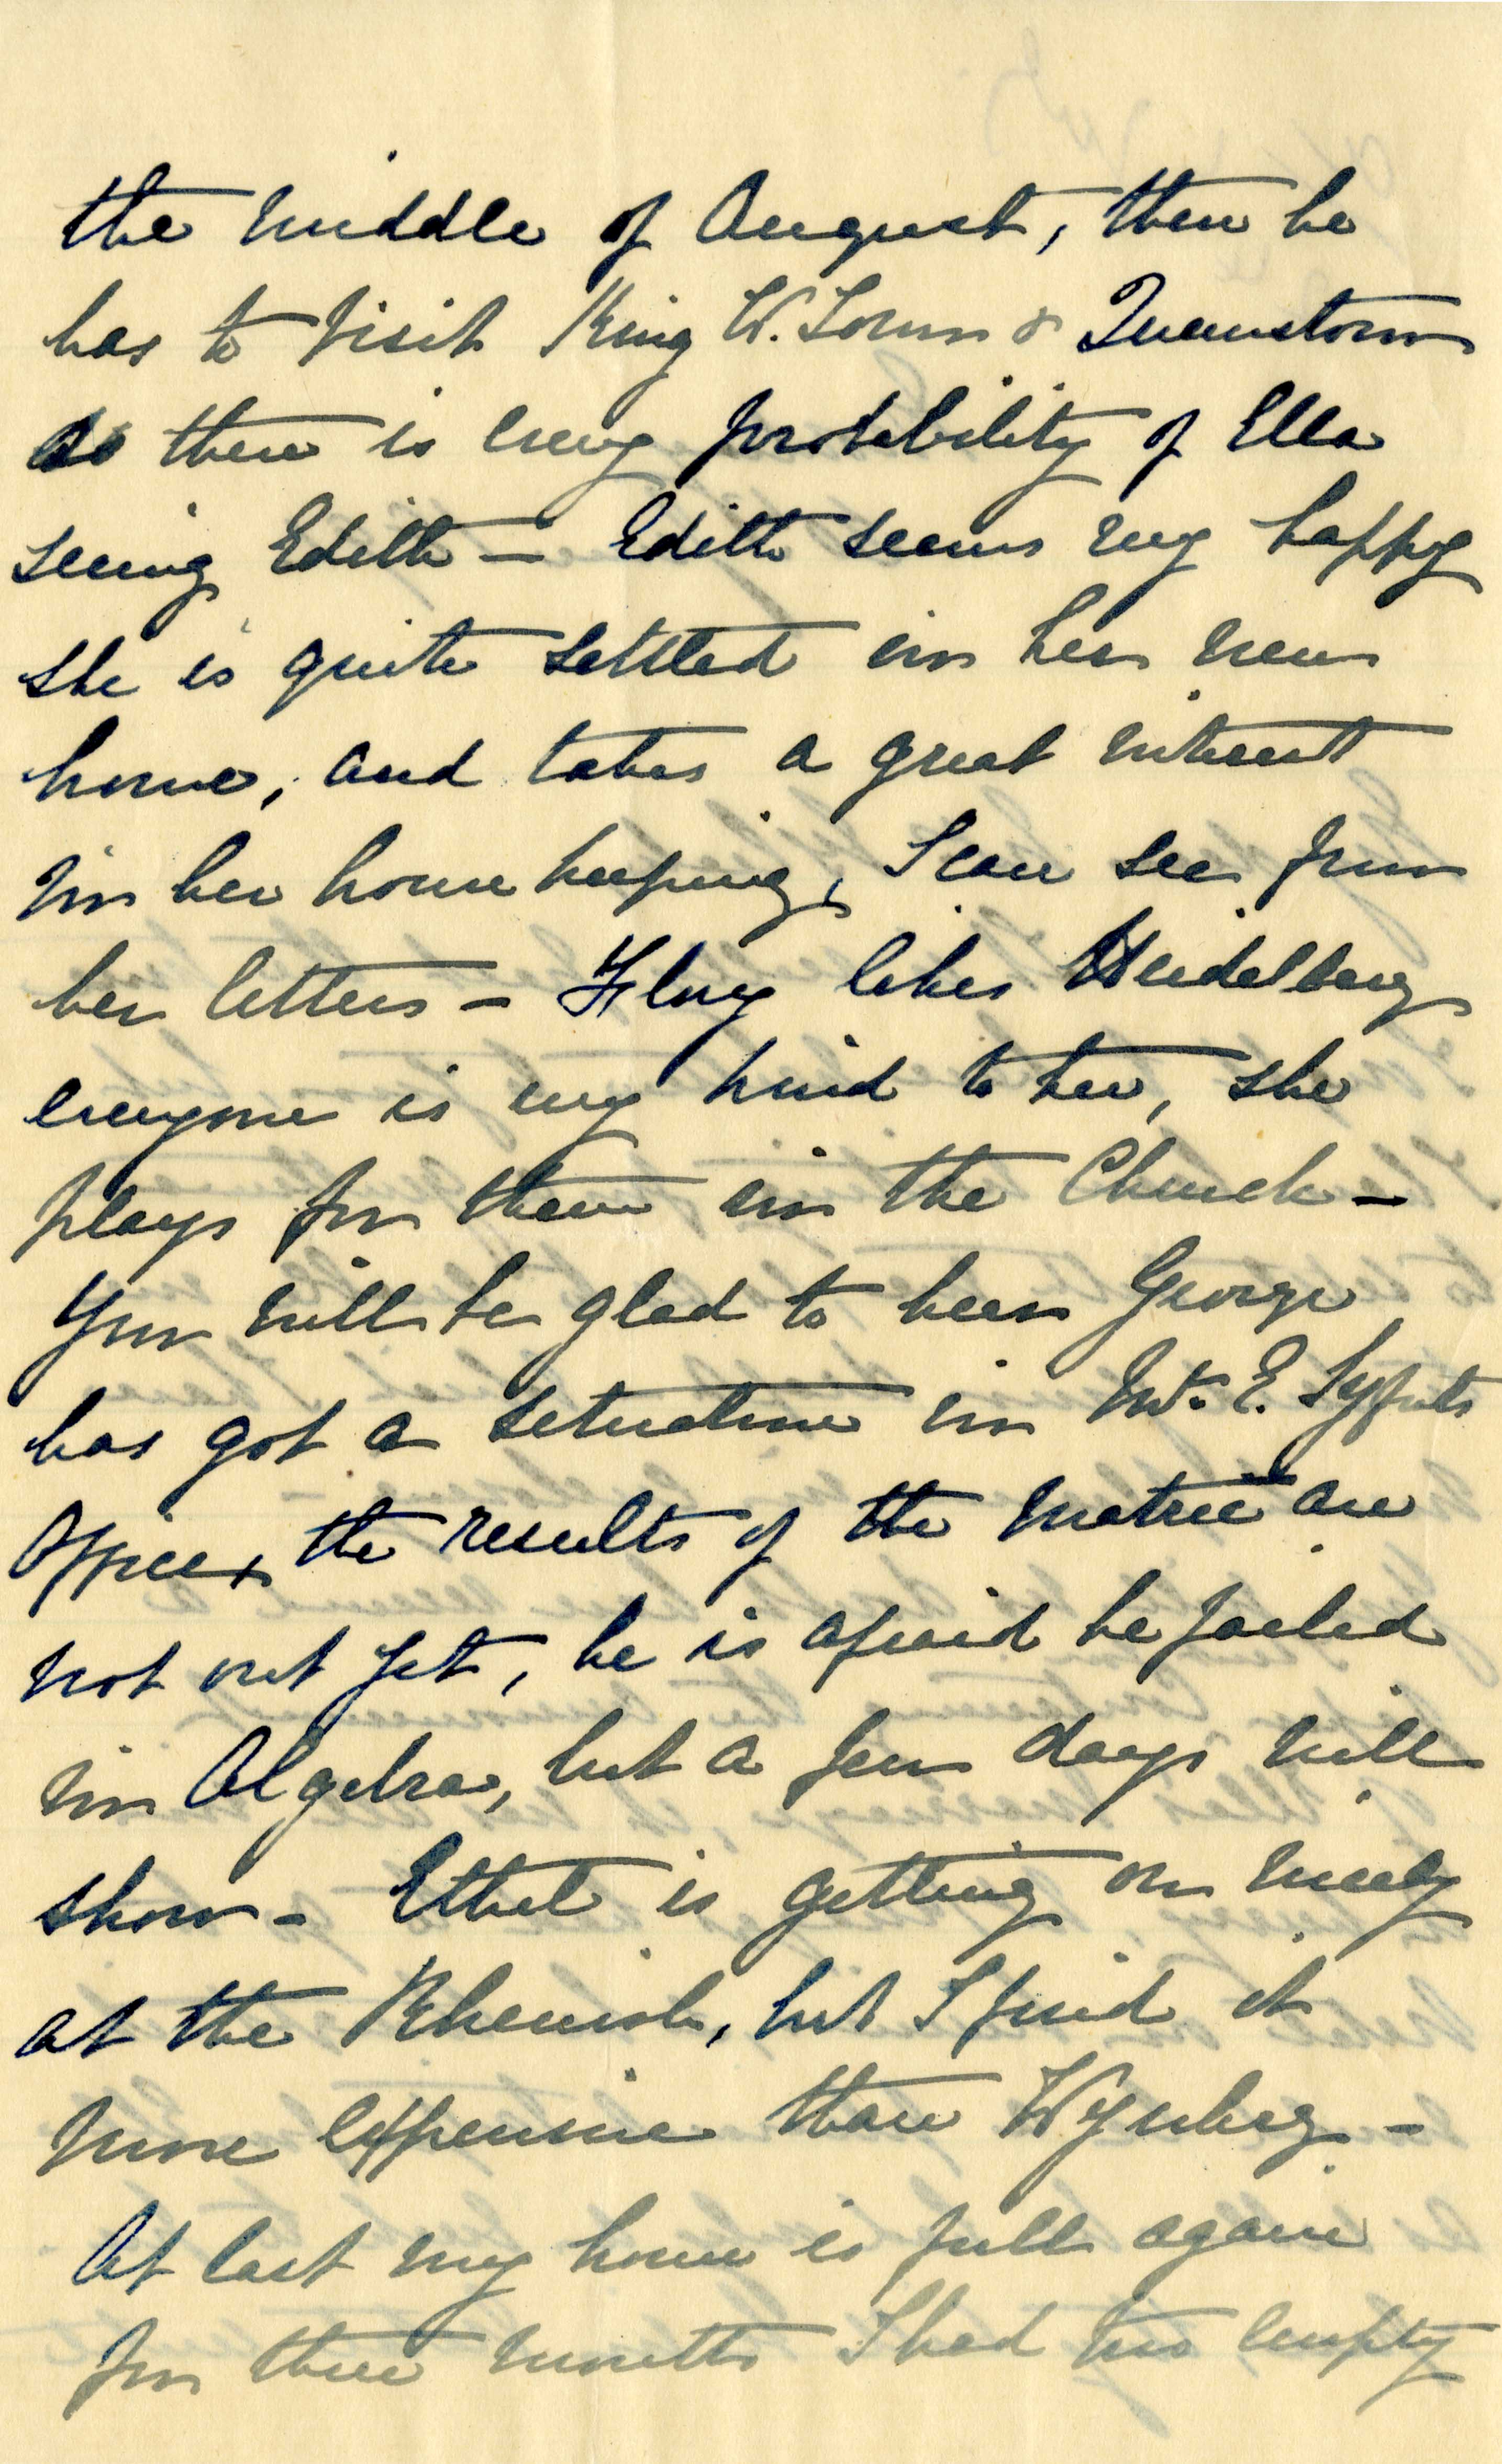 the middle of August, then he
has to visit King W. Town & Queenstown
so there is every probability of Ella
seeing Edith — Edith seems very happy
she is quite settled in her new
home, and takes a great interest
in her house keeping, I can see from
her letters — Flory likes Heidelberg
everyone is very kind to her, she
plays for them in the Church —
You will be glad to hear George
has got a situation in Mr. E. Syfrets
Office, the results of the Matric are
not out yet, he is afraid he failed
in Algebra, but a few days will
show — Ethel is getting on nicely
at the Rhenish, but I find it
more expensive than Wynberg —
At last my house is full again
for three months I had two empty